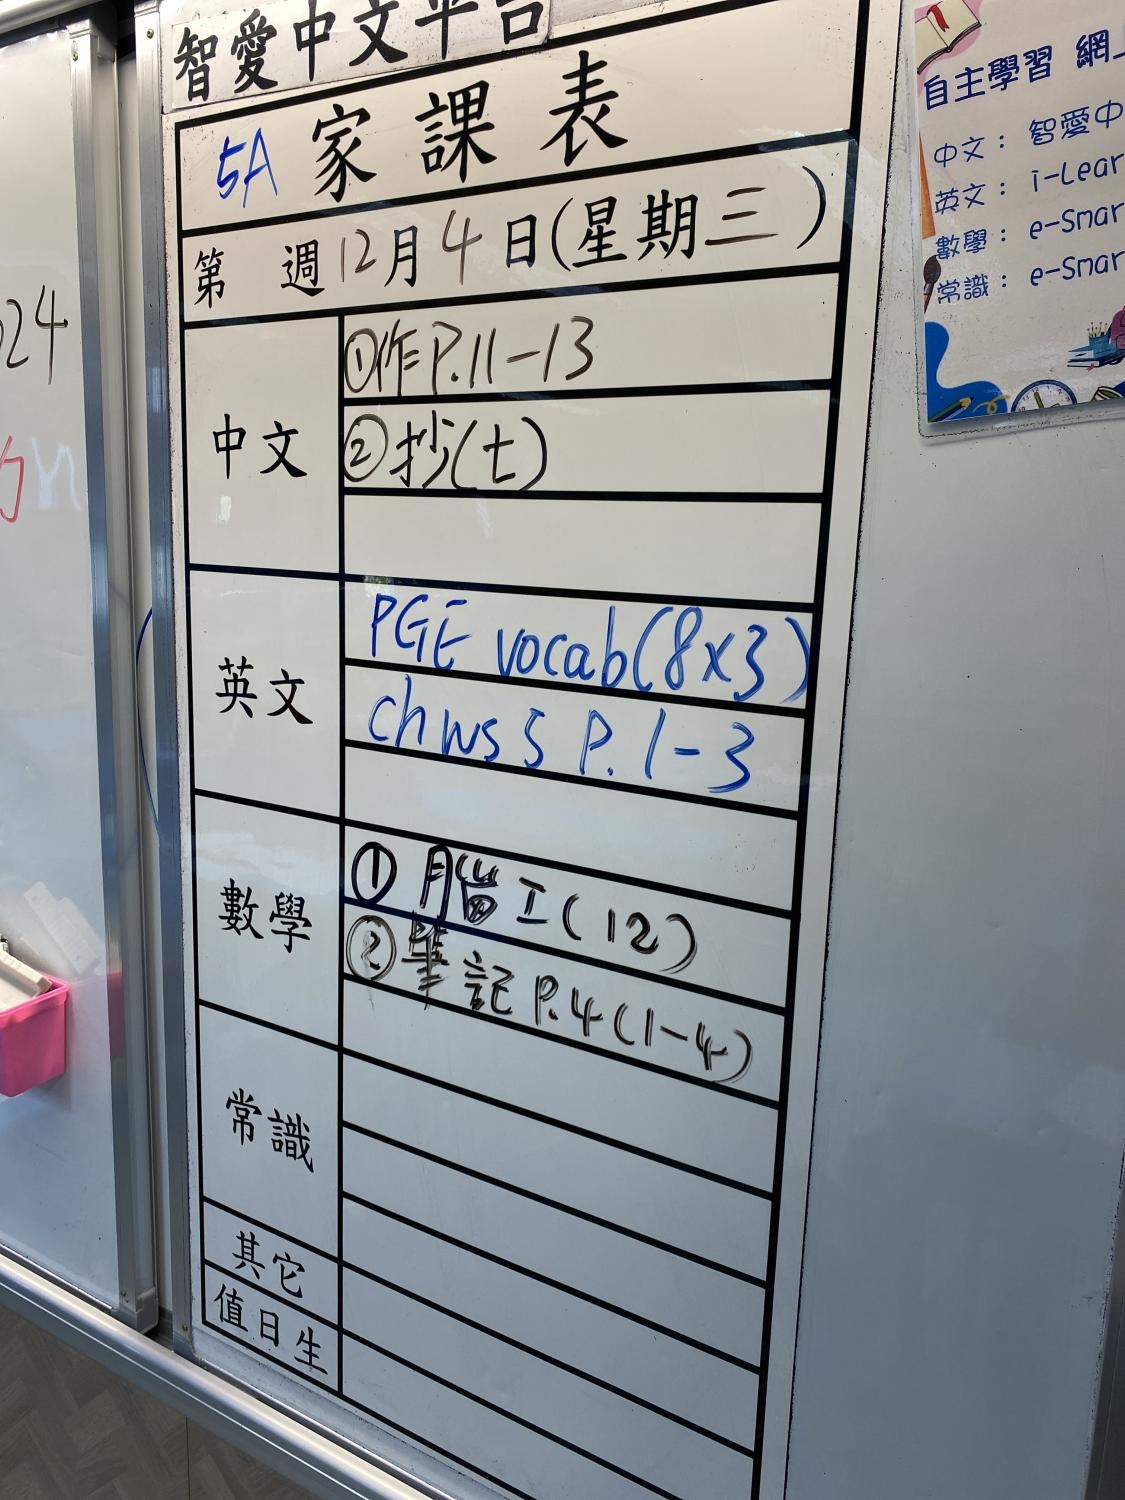 智愛中文平台
5A 家課表
第 週 12月4日(星期三)
中文
①作P.11-13
②抄(七)
英文
PGE vocab(8x3)
ch ws 5 P.1-3
數學
① 腦工(12)
② 筆記 P.4(1-4)
常識
其它
值日生
24
自主學習 網
中文：智愛中
英文：i-Lear
數學：e-Smar
常識：e-Smar